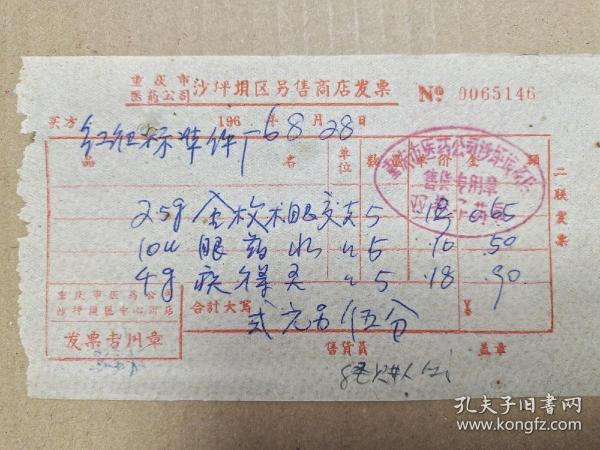 重庆市
医药公司 沙坪垻区另售商店发票 №. 0065146
买方 红红标准件厂 196 6年 8月 28日
品 名 单位 数量 单价 金 额
重庆市医药公司沙坪垻区
售货专用章
25g 金 眼 支 5 .13 0.65
10u 眼药水 〃 5 .10 .50
4g 〃 5 .18 .90
合計大写 弍元另伍分 ¥
重庆市医药公司
沙坪垻区中心商店
发票专用章
二联发票
售貨員 盖章
孔夫子旧书网
www.kongfz.com